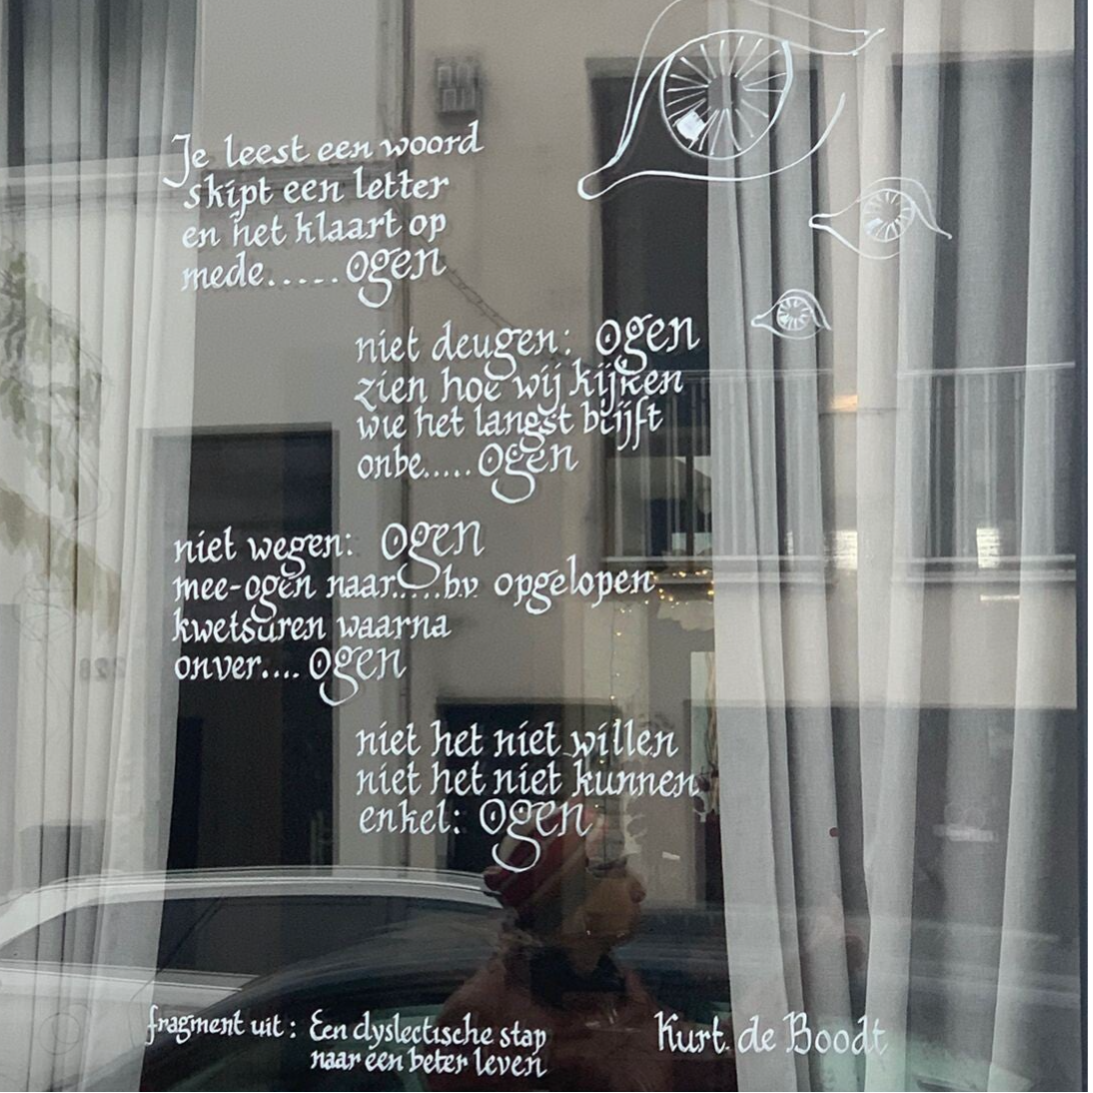 Je leest een woord
skipt een letter
en het klaart op
mede.....ogen
niet deugen: ogen
zien hoe wij kijken
wie het langst blijft
onbe.....ogen
niet wegen: ogen
mee-ogen naar.....bv opgelopen
kwetsuren waarna
onver....ogen
niet het niet willen
niet het niet kunnen
enkel: ogen
fragment uit: Een dyslectische stap
naar een beter leven
Kurt de Boodt
228